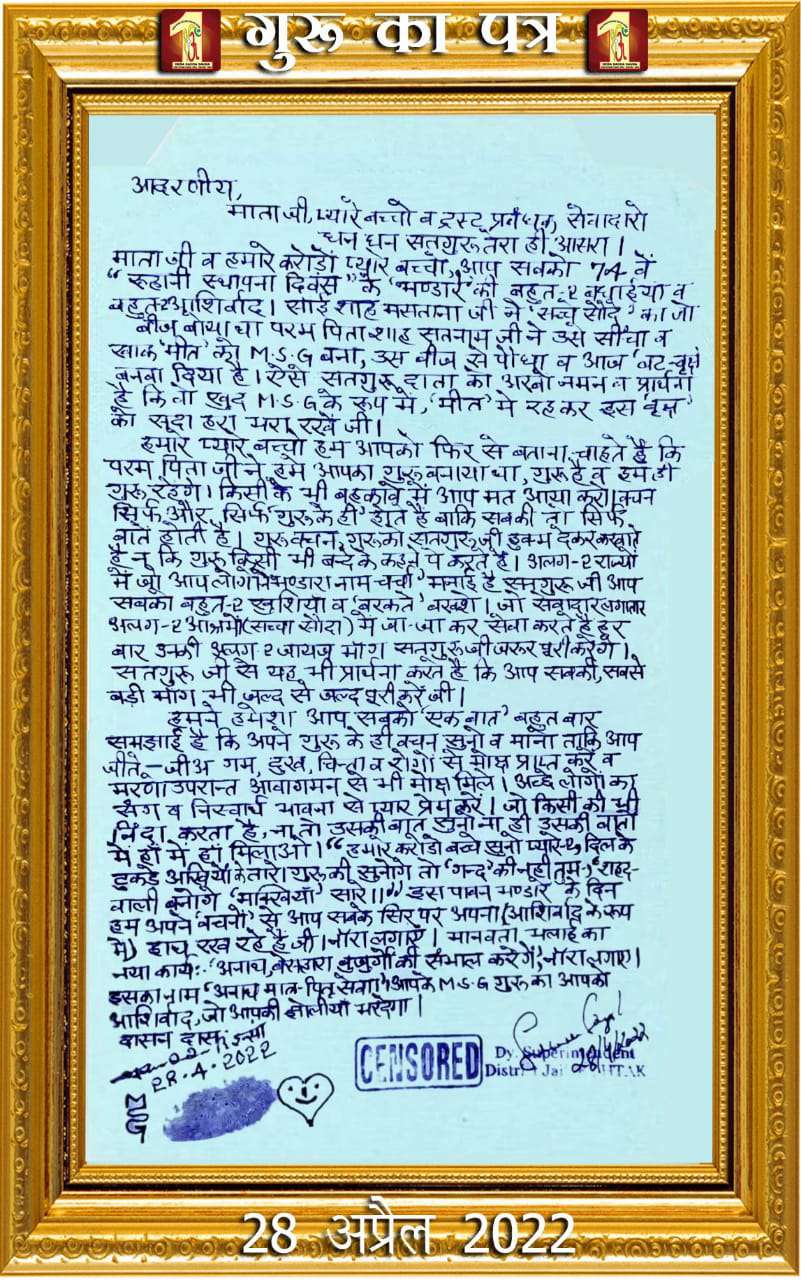 गुरू का पत्र
आदरणीय,
माता जी, प्यारे बच्चो व ट्रस्ट प्रबंधक, सेवादारो
धन धन सतगुरू तेरा ही आसरा।
माता जी व हमारे करोड़ों प्यारे बच्चों, आप सबको 74 वें
"रूहानी स्थापना दिवस" के 'भण्डारे' की बहुत-2 बधाईयां व
बहुत-2 आशिर्वाद। साईं शाह मसताना जी ने 'सच्चे सौदे' का जो
बीज बोया था परम पिता शाह सतनाम जी ने उसे सींचा व
खाक 'मीत' को M.S.G बना, उस बीज से पौधा व आज 'वट-वृक्ष'
बनवा दिया है। ऐसे सतगुरू दाता को अरबों नमन व प्रार्थना
है कि वो खुद M.S.G के रूप में, 'मीत' में रह कर इस 'वृक्ष'
को सदा हरा भरा रखें जी।
हमारे प्यारे बच्चो हम आपको फिर से बताना चाहते है कि
परम पिता जी ने हमें आपका गुरू बनाया था, गुरू है व हम ही
गुरू रहेंगे। किसी के भी बहकावे में आप मत आया करो। वचन
सिर्फ और सिर्फ 'गुरू के ही' होते है बाकि सबकी तो सिर्फ
बातें होती है। गुरू वचन, गुरू को सतगुरू जी हुक्म देकर करवाते
है न कि गुरू किसी भी बन्दे के कहने पे करते है। अलग-2 राज्यों
में जो आप लोगों ने भण्डारा नाम-चर्चा मनाई है सतगुरू जी आप
सबको बहुत-2 खुशियां व 'बरकतें' बख्शें। जो सेवादार लगातार
अलग-2 आश्रमों (सच्चा सौदा) में जा-जा कर सेवा करते है हर
बार उनकी अलग-2 जायज मांग सतगुरू जी जरूर पूरी करेंगे।
सतगुरू जी से यह भी प्रार्थना करते है कि आप सबकी, सबसे
बड़ी मांग भी जल्द से जल्द पूरी करें जी।
हमने हमेशा आप सबको 'एक बात' बहुत बार
समझाई है कि अपने गुरू के ही वचन सुनो व मानो ताकि आप
जीते-जीअ गम, दुख, चिन्ता व रोगों से मोक्ष प्राप्त करें व
मरणाउपरान्त आवागमन से भी मोक्ष मिले। अच्छे लोगों का
संग व निस्वार्थ भावना से प्यार प्रेम करें। जो किसी की भी
निंदा करता है, ना तो उसकी बात सुनो ना ही उसकी बातों
में हाँ में हां मिलाओ। "हमारे करोड़ो बच्चे सुनो प्यारे-2 दिल के
टुकड़े अखियों के तारो गुरू की सुनोगे तो 'गन्द' की नहीं तुम, 'शहद-
वाली बनोगे 'मक्खियां' सारे।।" इस पावन भण्डारे के दिन
हम अपने 'वचनों' से आप सबके सिर पर अपना (आशिर्वाद के रूप
में) हाथ रख रहे है जी। नारा लगाएं। मानवता भलाई का
नया कार्य:- 'अनाथ, बेसहारा बुजुर्गों की संभाल करेंगे', नारा लगाए।
इसका नाम 'अनाथ मातृ-पितृ सेवा'। आपके M.S.G गुरू का आपको
आशिर्वाद, जो आपकी झोलीयां भर देगा।
दासन दास, इन्सा
28.4.2022
MSG
CENSORED
Dy. Superintendent
District Jail ROHTAK
28/4/2022
28 अप्रैल 2022